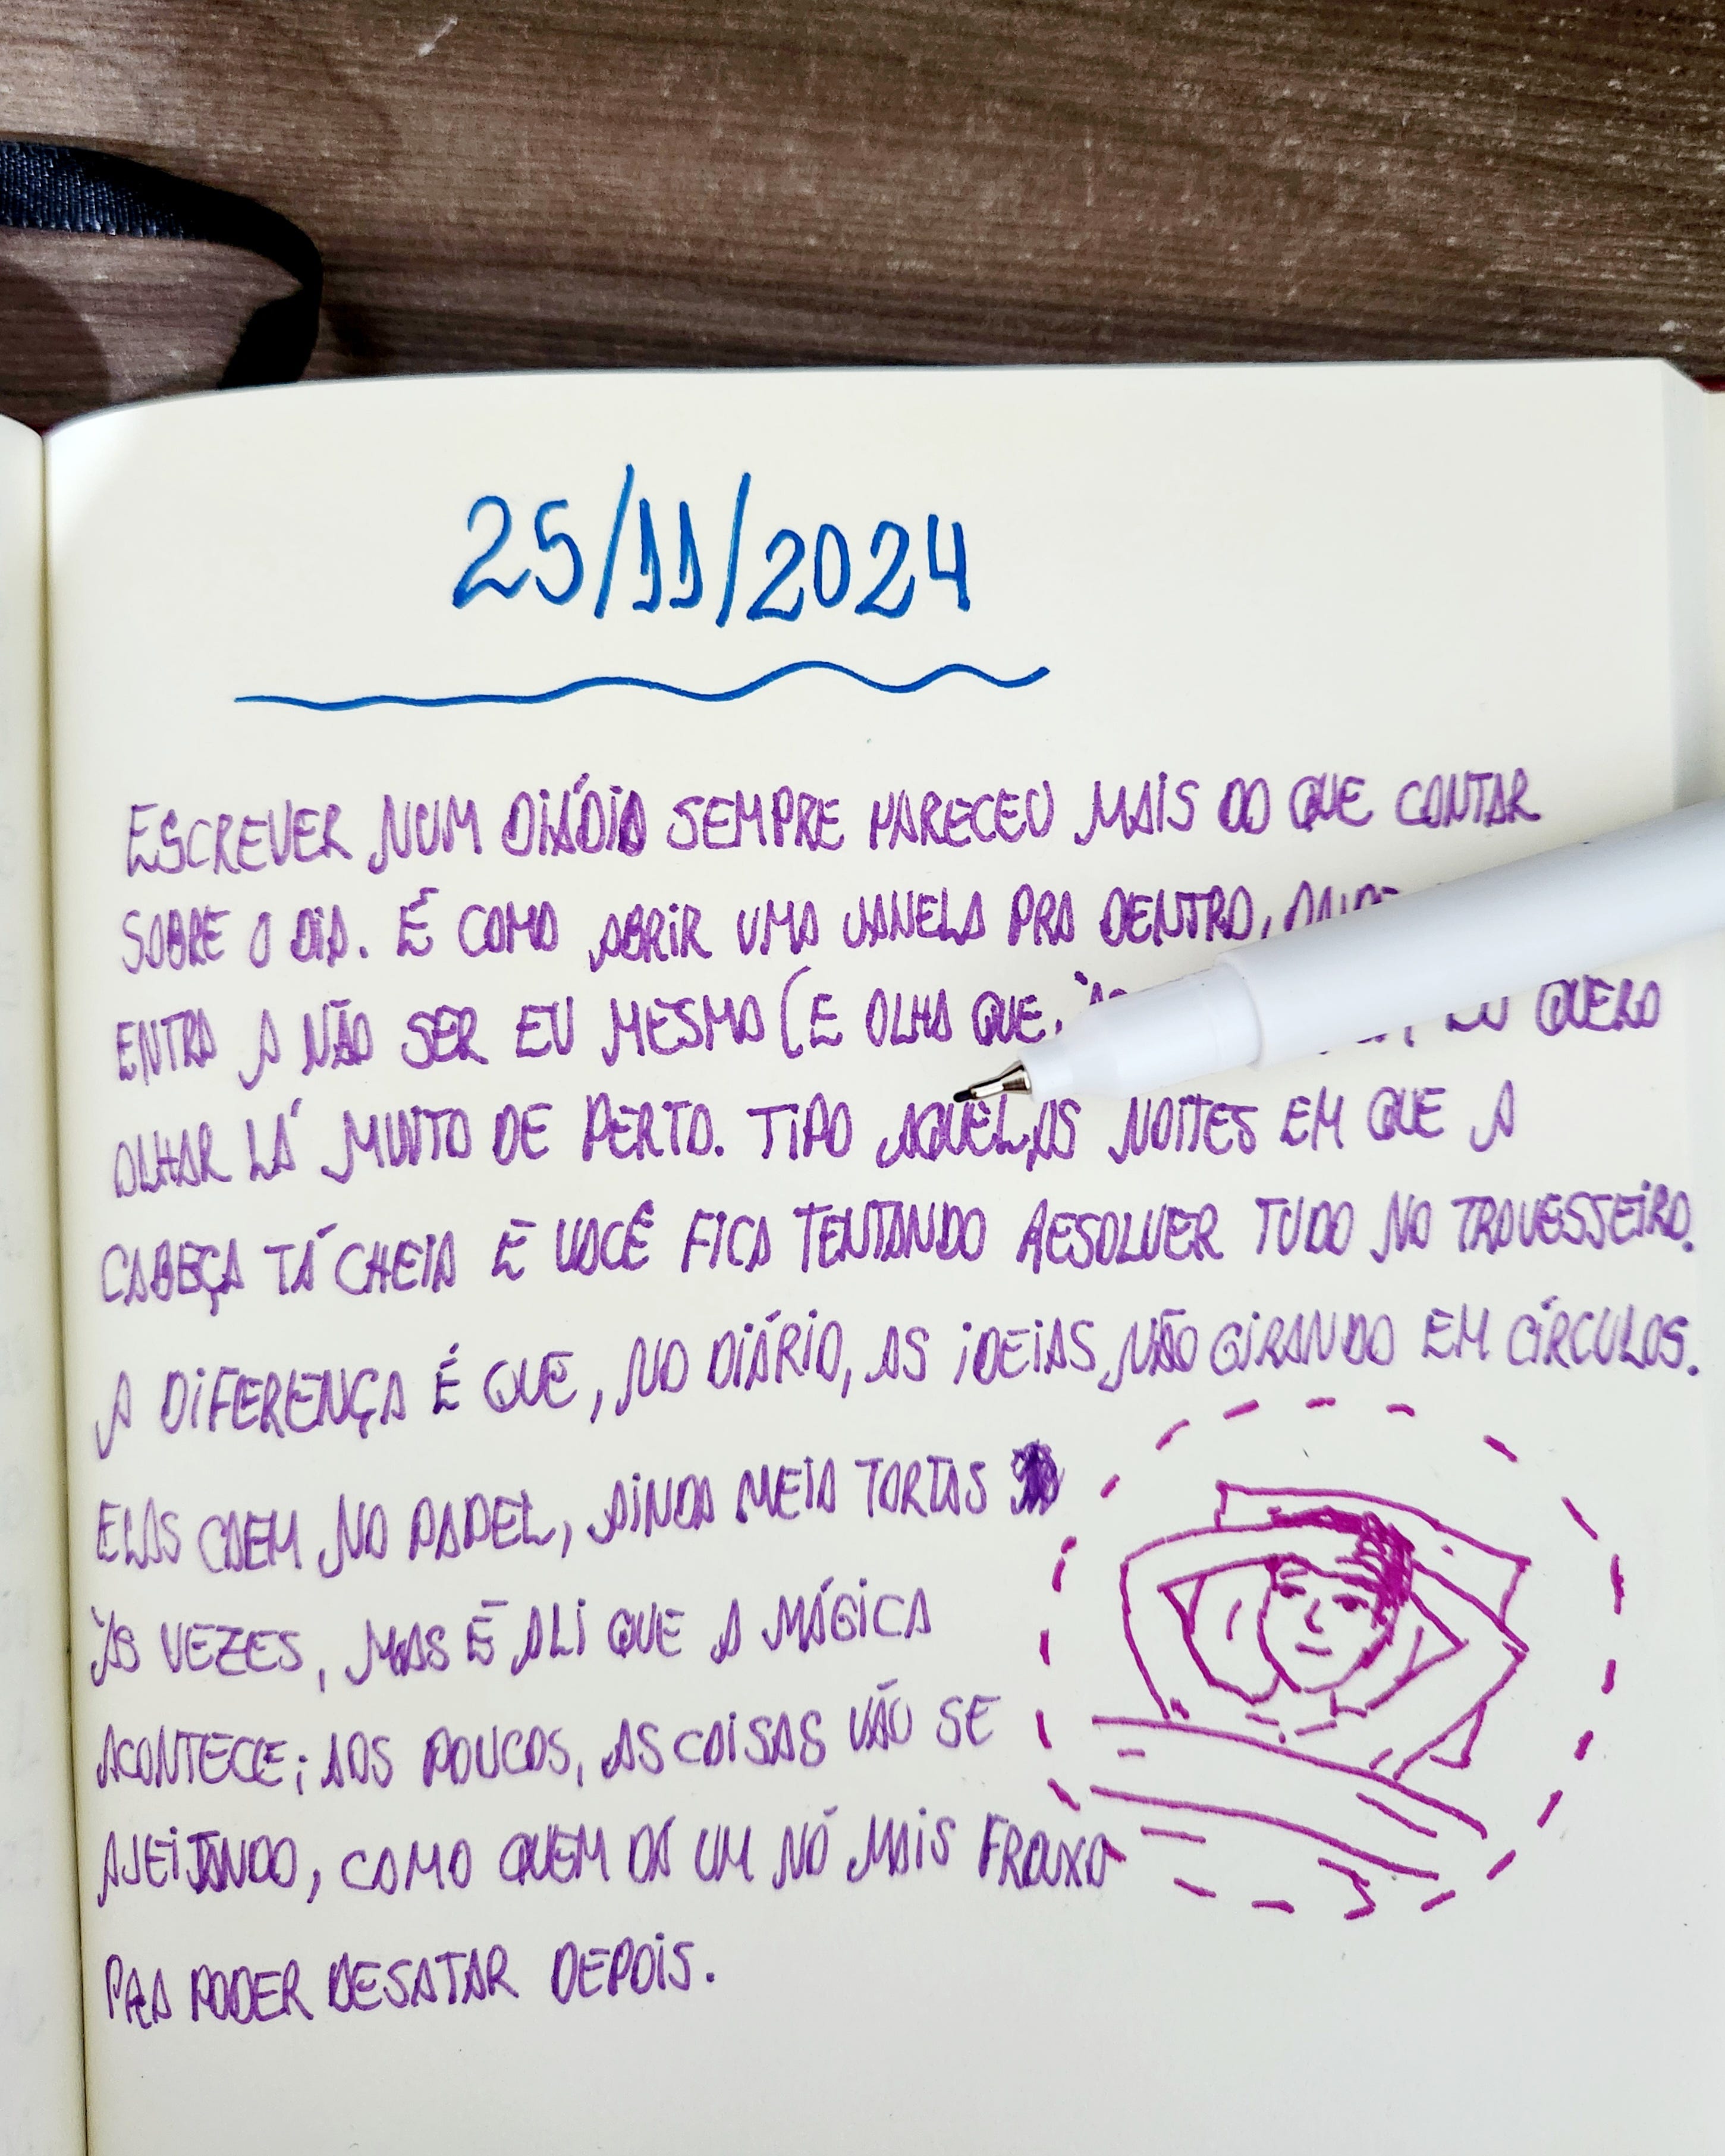 25/11/2024
ESCREVER NUM DIÁDIO SEMPRE PARECEU MAIS DO QUE CONTAR
SOBRE O DIA. É COMO ABRIR UMA JANELA PRA DENTRO,
ENTRA A NÃO SER EU MESMO (E OLHA QUE, QUERO
OLHAR LÁ MUITO DE PERTO. TIPO AQUELAS NOITES EM QUE A
CABEÇA TÁ CHEIA E VOCÊ FICA TENTANDO RESOLVER TUDO NO TRAVESSEIRO.
A DIFERENÇA É QUE, NO DIÁRIO, AS IDEIAS NÃO GIRANDO EM CÍRCULOS.
ELAS CAEM NO PAPEL, AINDA MEIA TORTAS
ÀS VEZES, MAS É ALI QUE A MÁGICA
ACONTECE; AOS POUCOS, AS COISAS VÃO SE
AJEITANDO, COMO QUEM DÁ UM NÓ MAIS FROUXO
PRA PODER DESATAR DEPOIS.